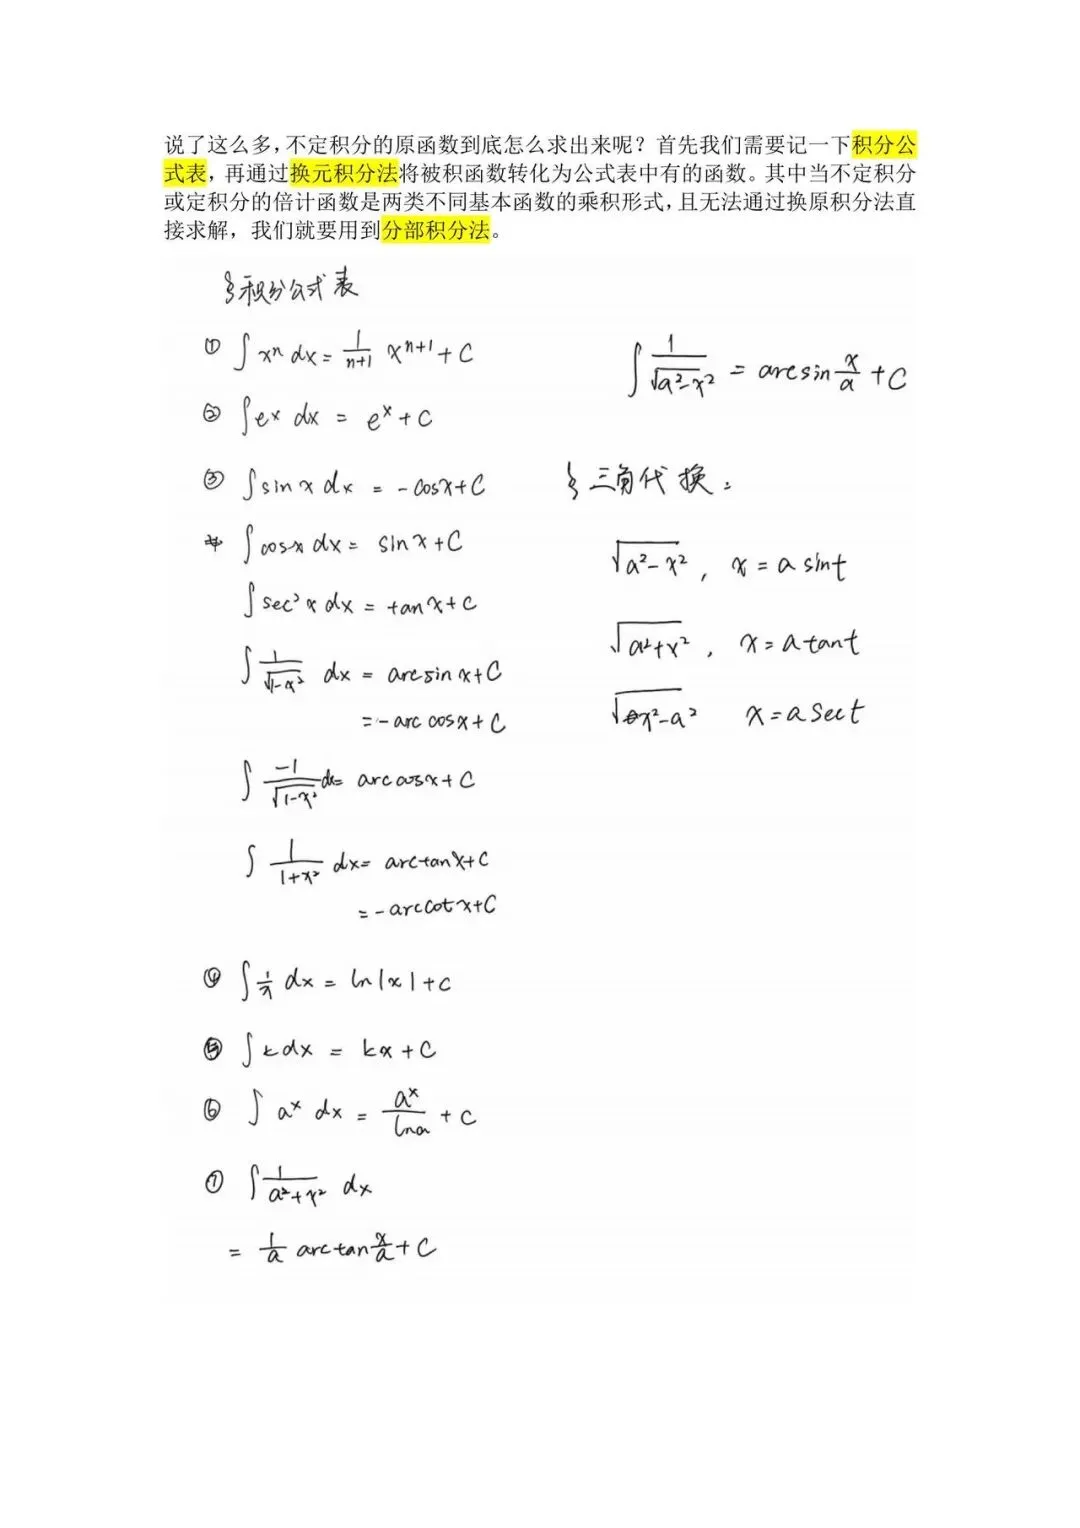 说了这么多，不定积分的原函数到底怎么求出来呢？首先我们需要记一下积分公
式表，再通过换元积分法将被积函数转化为公式表中有的函数。其中当不定积分
或定积分的倍计函数是两类不同基本函数的乘积形式，且无法通过换原积分法直
接求解，我们就要用到分部积分法。
§积分公式表
① ∫ xⁿ dx = 1/(n+1) xⁿ⁺¹ + C
② ∫ eˣ dx = eˣ + C
③ ∫ sin x dx = - cosx + C
∫ cosx dx = sinx + C
∫ sec²x dx = tanx + C
∫ 1/√(1-x²) dx = arcsin x + C
= - arc cosx + C
∫ -1/√(1-x²) dx = arccosx + C
∫ 1/(1+x²) dx = arctanx + C
= - arccotx + C
④ ∫ 1/x dx = ln|x| + C
⑤ ∫ k dx = kx + C
⑥ ∫ aˣ dx = aˣ/lna + C
⑦ ∫ 1/(a²+x²) dx
= 1/a arctan x/a + C
∫ 1/√(a²-x²) = arcsin x/a + C
§三角代换：
√(a²-x²) , x = a sint
√(a²+x²) , x = a tant
√(x²-a²) x = a sect